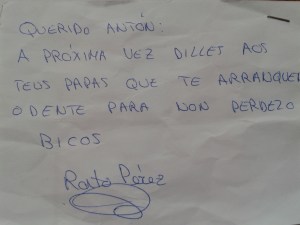 QUERIDO ANTÓN:
A PRÓXIMA VEZ DILLES AOS
TEUS PAPAS QUE TE ARRANQUEN
O DENTE PARA NON PERDELO
BICOS
Rato Pérez